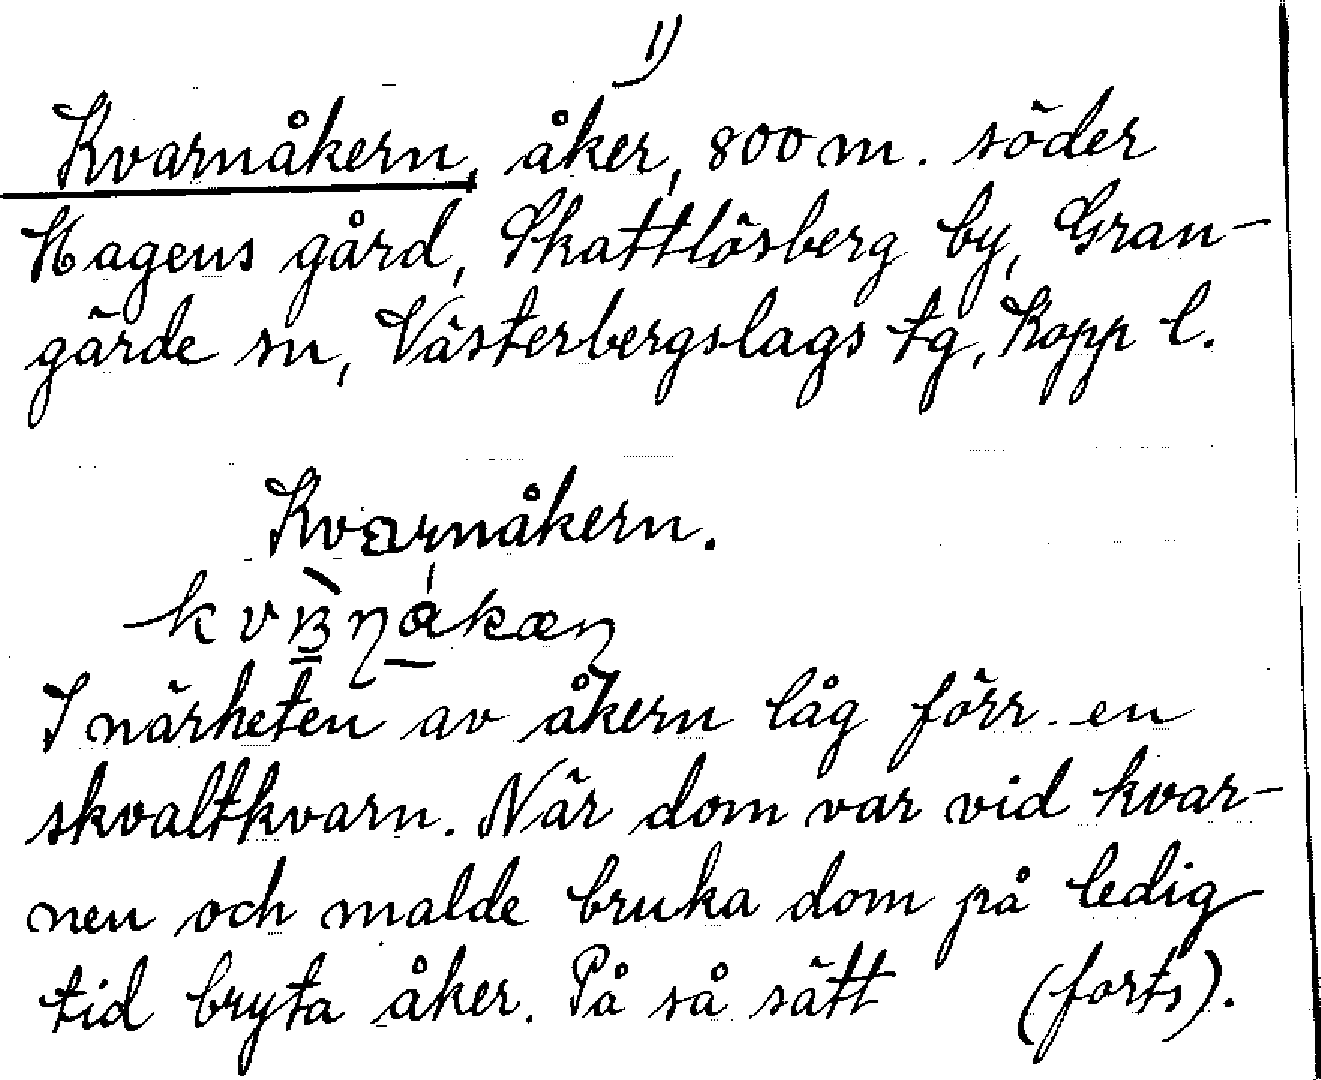 1)
Kvarnåkern, åker, 800 m. söder
Hagens gård, Skattlösberg by, Gran-
gärde sn, Västerbergslags tg, Kopp l.
Kvarnåkern.
I närheten av åkern låg förr en
skvaltkvarn. När dom var vid kvar-
nen och malde bruka dom på ledig
tid bryta åker. På så sätt (forts).